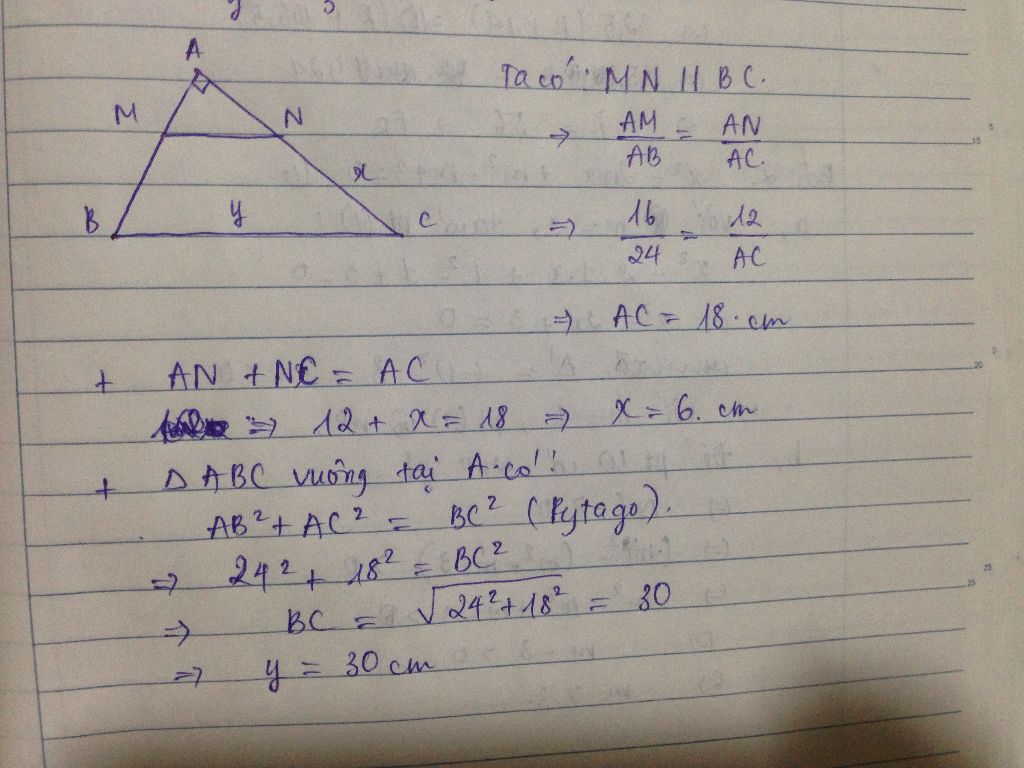 A
M
N
x
B
y
C
Ta có: MN // BC.
→ AM/AB = AN/AC.
⇒ 16/24 = 12/AC
⇒ AC = 18. cm
+ AN + NC = AC
⇒ 12 + x = 18 ⇒ x = 6. cm
+ Δ ABC vuông tại A có:
AB² + AC² = BC² (Pytago).
⇒ 24² + 18² = BC²
⇒ BC = √24²+18² = 30
⇒ y = 30 cm